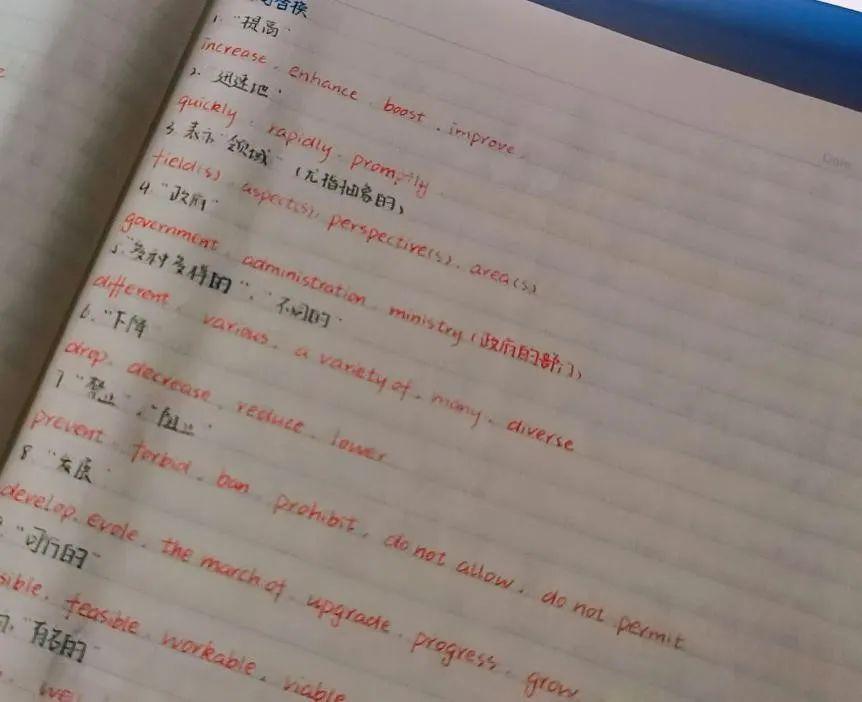 替换
1. "提高"
increase、enhance、boost、improve、
2. "迅速地"
quickly、rapidly、promptly
3. 表示"领域"(尤指抽象的)
field(s)、aspect(s)、perspective(s)、area(s)
4. "政府"
government、administration、ministry(政府的部门)
5. "多种多样的"、"不同的"
different、various、a variety of、many、diverse
6. "下降"
drop、decrease、reduce、lower
7. "禁止"、"阻止"
prevent、forbid、ban、prohibit、do not allow、do not permit
8. "发展"
develop、evole、the march of、upgrade、progress、grow
"可行的"
sible、feasible、workable、viable
"有名的"
Date